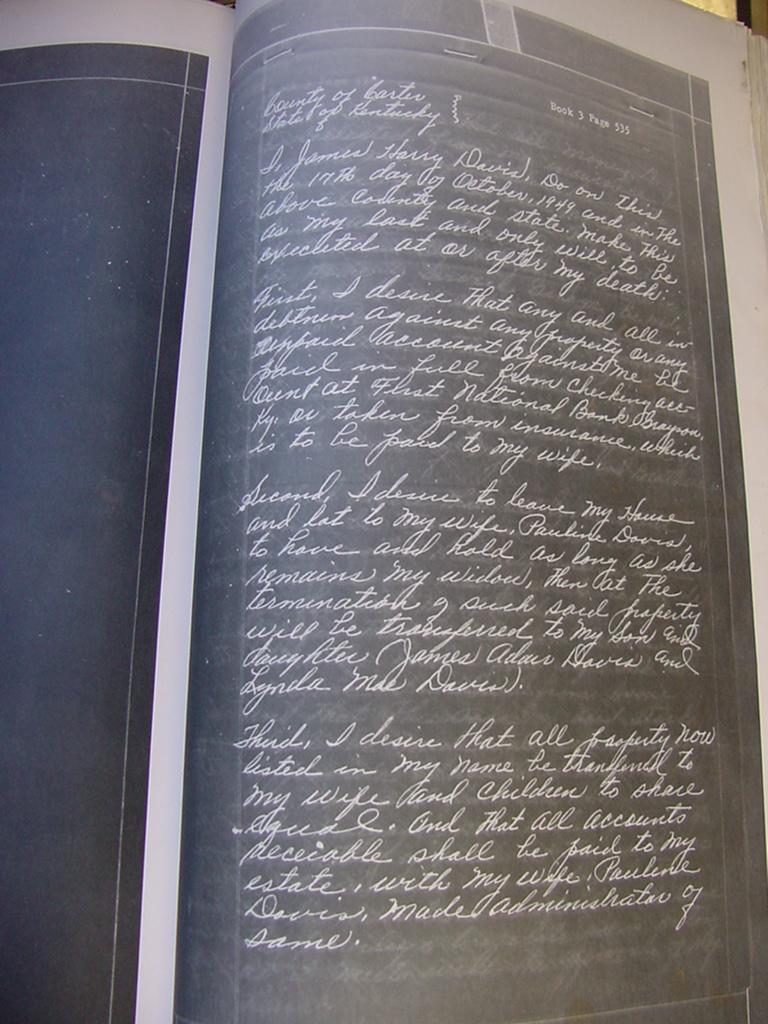 County of Carter
State of Kentucky
Book 3 Page 535
I, James Harry Davis, Do on this
the 17th day of October, 1949 and in the
above County and state. Make this
as my last and only will, to be
executed at or after my death:
First, I desire that any and all in-
debtness against any property or any
unpaid account against me be
paid in full from checking acc-
ount at First National Bank Grayson,
Ky. or taken from insurance, which
is to be paid to my wife.
Second, I desire to leave my House
and lot to my wife, Pauline Davis,
to have and hold as long as she
remains my widow, then at the
termination of such said property
will be transferred to my son and
daughter (James Adair Davis and
Lynda Mae Davis).
Third, I desire that all property now
listed in my name be transferred to
my wife and children to share
equal. And that all accounts
receivable shall be paid to my
estate, with my wife Pauline
Davis, made administrator of
same.